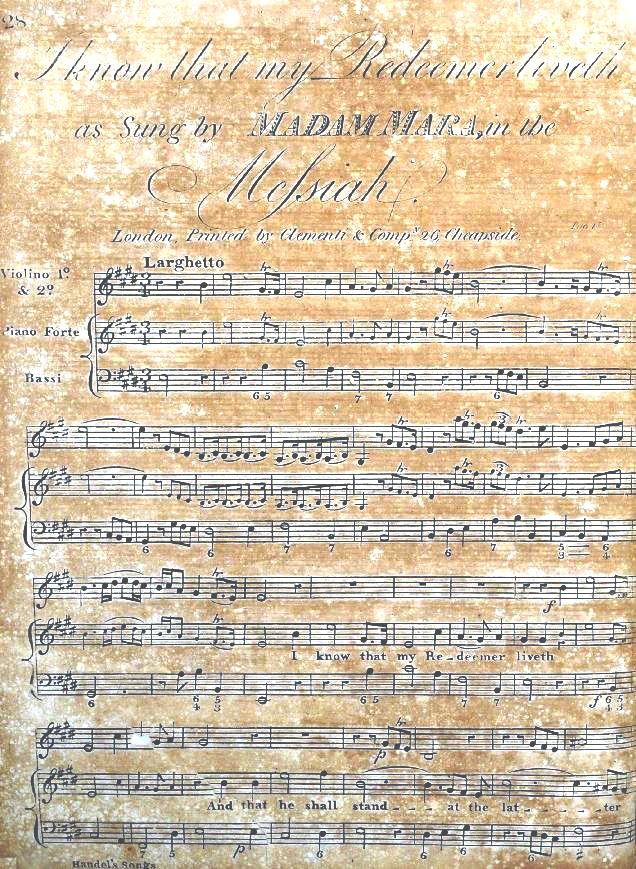 28
I know that my Redeemer liveth
as Sung by MADAM MARA, in the
Messiah.
London, Printed by Clementi & Compy. 26, Cheapside.
Larghetto
Violino 1o.
& 2o.
Piano Forte
Bassi
6 5 7 7 6
6 6 7 7 6 7 5 6
3 4
f
I know that my Re-deemer liveth
6 6 5 6 7 7 f 6 5
4 3 4 3
p
And that he shall stand - - - at the lat - - - - ter
7 5 p 6 6 6 6
Handel's Songs